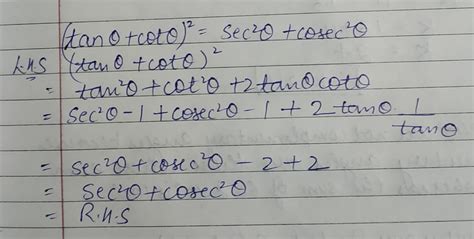 (tanθ+cotθ)² = sec²θ + cosec²θ
LHS (tanθ + cotθ)²
= tan²θ + cot²θ + 2tanθcotθ
= sec²θ - 1 + cosec²θ - 1 + 2tanθ 1/tanθ
= sec²θ + cosec²θ - 2 + 2
= sec²θ + cosec²θ
= R.H.S